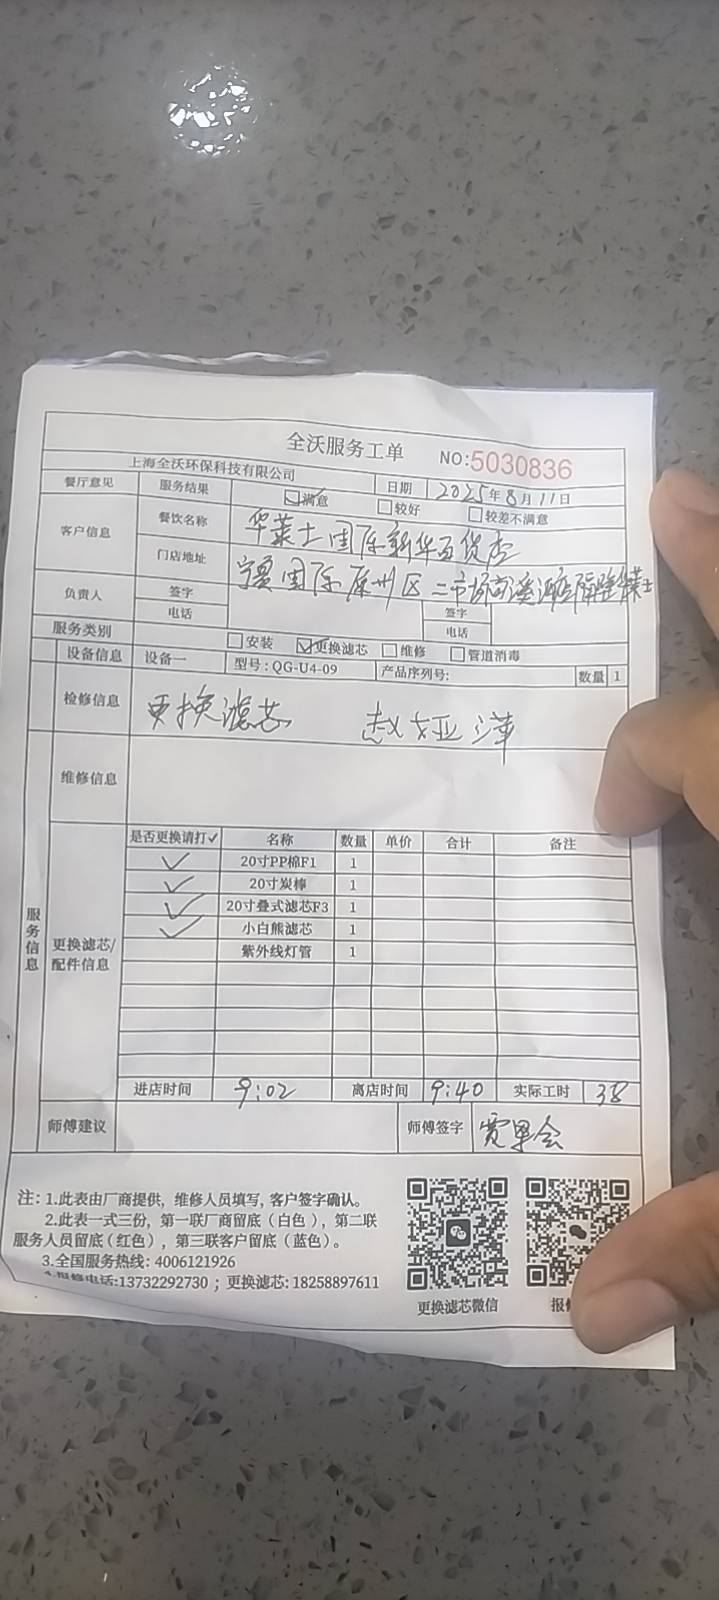 全沃服务工单 NO:5030836
上海全沃环保科技有限公司 日期 2025年8月11日
餐厅意见 服务结果 满意 较好 较差不满意
客户信息 餐饮名称 华莱士国际新华百货店
门店地址 宁夏固原原州区二市场
负责人 签字 签字
电话 电话
服务类别 安装 更换滤芯 维修 管道消毒
设备信息 设备一 型号:QG-U4-09 产品序列号: 数量 1
检修信息 更换滤芯 赵娅萍
维修信息
服务信息
更换滤芯/配件信息
是否更换请打✓ 名称 数量 单价 合计 备注
✓ 20寸PP棉F1 1
✓ 20寸炭棒 1
✓ 20寸叠式滤芯F3 1
✓ 小白熊滤芯 1
紫外线灯管 1
进店时间 9:02 离店时间 9:40 实际工时 38
师傅建议 师傅签字
注: 1.此表由厂商提供, 维修人员填写, 客户签字确认。
2.此表一式三份, 第一联厂商留底(白色), 第二联
服务人员留底(红色), 第三联客户留底(蓝色)。
3.全国服务热线: 4006121926
报修电话:13732292730 ; 更换滤芯: 18258897611
更换滤芯微信 报修